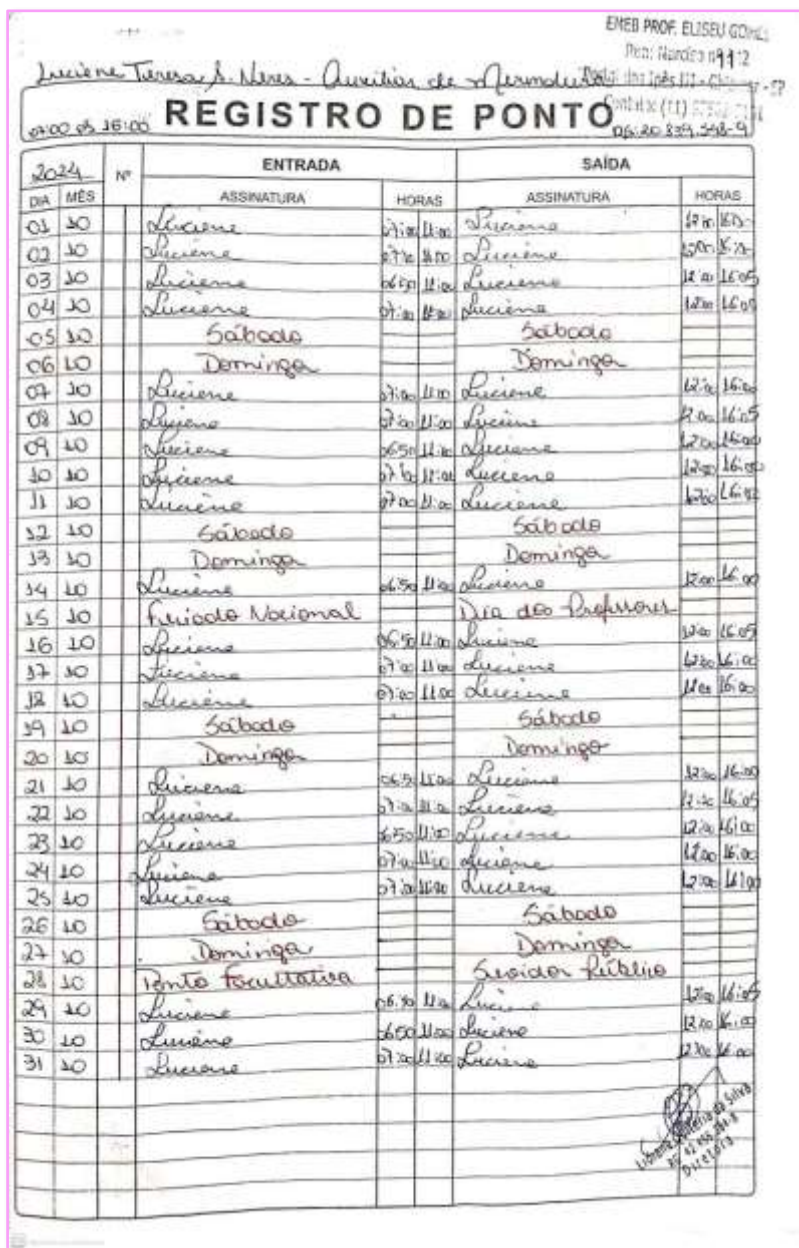 EMEB PROF. ELISEU GOMES
Luciene Teresa S. Neres - Auxiliar de
07:00 às 16:00 REGISTRO DE PONTO
2024 Nº ENTRADA SAÍDA
DIA MÊS ASSINATURA HORAS ASSINATURA HORAS
01 10 Luciene 07:00 11:00 Luciene 12:00 16:00
02 10 Luciene 11:00 Luciene
03 10 Luciene 06:50 11:00 Luciene 12:00 16:05
04 10 Luciene 07:00 11:00 Luciene 12:00
05 10 Sábado Sábado
06 10 Domingo Domingo
07 10 Luciene 07:00 11:00 Luciene 12:00 16:00
08 10 Luciene 07:00 11:00 Luciene 12:00 16:05
09 10 Luciene 06:50 11:00 Luciene 12:00 16:00
10 10 Luciene 07:00 11:00 Luciene 12:00 16:00
11 10 Luciene 07:00 11:00 Luciene 12:00
12 10 Sábado Sábado
13 10 Domingo Domingo
14 10 Luciene 06:50 11:00 Luciene 12:00 16:00
15 10 Feriado Nacional Dia dos Professores
16 10 Luciene 06:50 11:00 Luciene 12:00 16:05
17 10 Luciene 07:00 11:00 Luciene 12:00 16:00
18 10 Luciene 07:00 11:00 Luciene 16:00
19 10 Sábado Sábado
20 10 Domingo Domingo
21 10 Luciene 11:00 Luciene 12:00 16:00
22 10 Luciene 07:00 11:00 Luciene 16:05
23 10 Luciene 06:50 11:00 Luciene 12:00 16:00
24 10 Luciene 07:00 11:00 Luciene 12:00 16:00
25 10 Luciene 07:00 11:00 Luciene 12:00
26 10 Sábado Sábado
27 10 Domingo Domingo
28 10 Ponto Facultativo Servidor Público
29 10 Luciene 11:00 Luciene 12:00 16:05
30 10 Luciene 06:50 11:00 Luciene 12:00 16:00
31 10 Luciene 07:00 11:00 Luciene 12:00 16:00
da Silva
Diretora